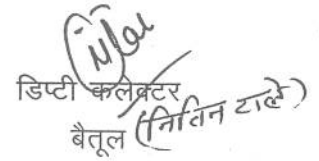 डिप्टी कलेक्टर
बैतूल (नितिन टाले)